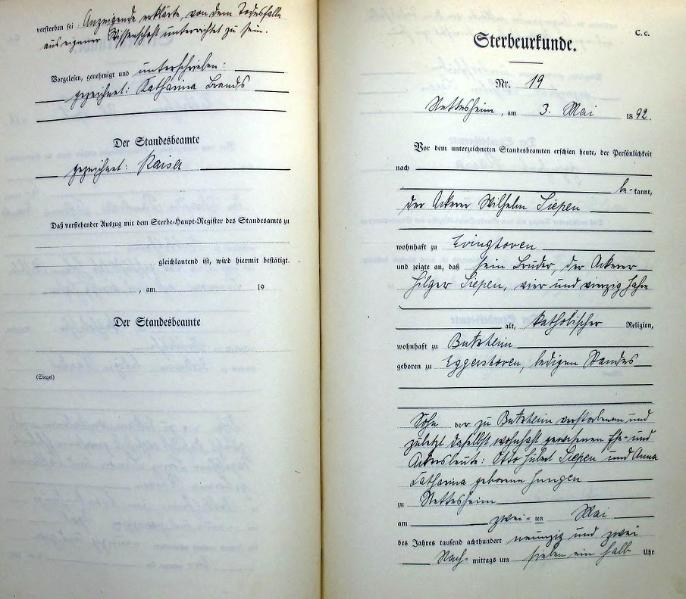 verstorben sei. Anzeigende erklärte, von dem Todesfalle
aus eigener Wissenschaft unterrichtet zu sein.
Vorgelesen, genehmigt und unterschrieben:
gezeichnet: Katharina Brands
Der Standesbeamte
gezeichnet: Kaiser
Daß vorstehender Auszug mit dem Sterbe-Haupt-Register des Standesamts zu
gleichlautend ist, wird hiermit bestätigt.
, am 19
Der Standesbeamte
(Siegel)
C. c.
Sterbeurkunde.
Nr. 19
Nettesheim, am 3. Mai 1892.
Vor dem unterzeichneten Standesbeamten erschien heute, der Persönlichkeit
nach
be- kannt,
der Ackerer Wilhelm Siepen
wohnhaft zu Evinghoven
und zeigte an, daß sein Bruder, der Ackerer
Hilger Siepen, vier und vierzig Jahre
alt, katholischer Religion,
wohnhaft zu Butzheim
geboren zu Eggershoven, ledigen Standes
Sohn der zu Butzheim verstorbenen und
zuletzt daselbst wohnhaft gewesenen Ehe- und
Ackersleute: Otto Hubert Siepen und Anna
Catharina geborene Jungen
zu Nettesheim
am zwei- ten Mai
des Jahres tausend achthundert neunzig und zwei
Nach- mittags um sieben ein halb Uhr